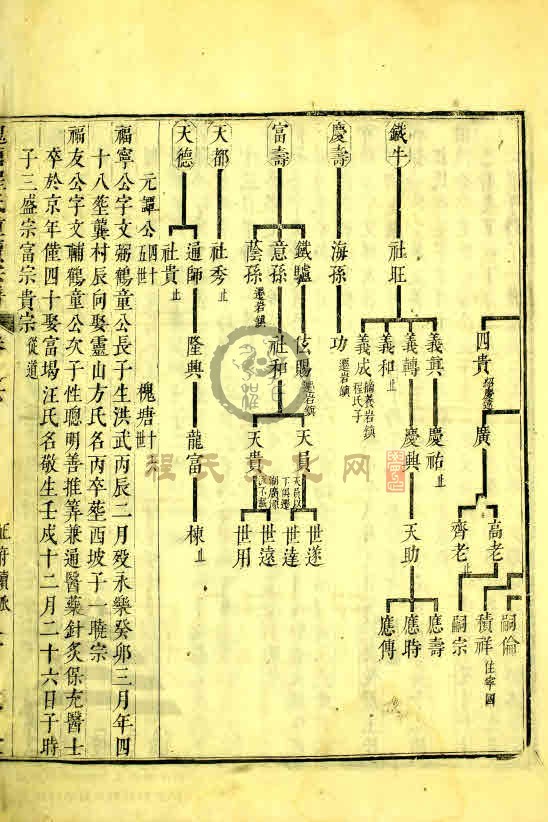 四貴
廣
高老
齊老止
嗣倫
積祥住寧國
嗣宗
鐵牛
社旺
義真
慶祐止
義轉
慶興
天助
應壽
應時
應傳
義和止
義成
程氏子
慶壽
海孫
功遷岩鎮
富壽
鐵驢
遷岩鎮
意孫
社和
天員
天員以
下俱遷
世遂
世達
天貴
世遠
世用
蔭孫遷岩鎮
天都
社秀止
天德
通師
隆興
龍富
棟止
社貴止
元譚公四十五世
槐塘十世
福寧公字文弼鶴童公長子生洪武丙辰二月歿永樂癸卯三月年四
十八葬龔村辰向娶靈山方氏名丙卒葬西坡子一曉宗
福友公字文輔鶴童公次子性聰明善推筭兼通醫藥針炙保充醫士
卒於京年僅四十娶富場汪氏名敬生壬戌十二月二十六日子時
子三盛宗富宗貴宗從道
程氏文化网